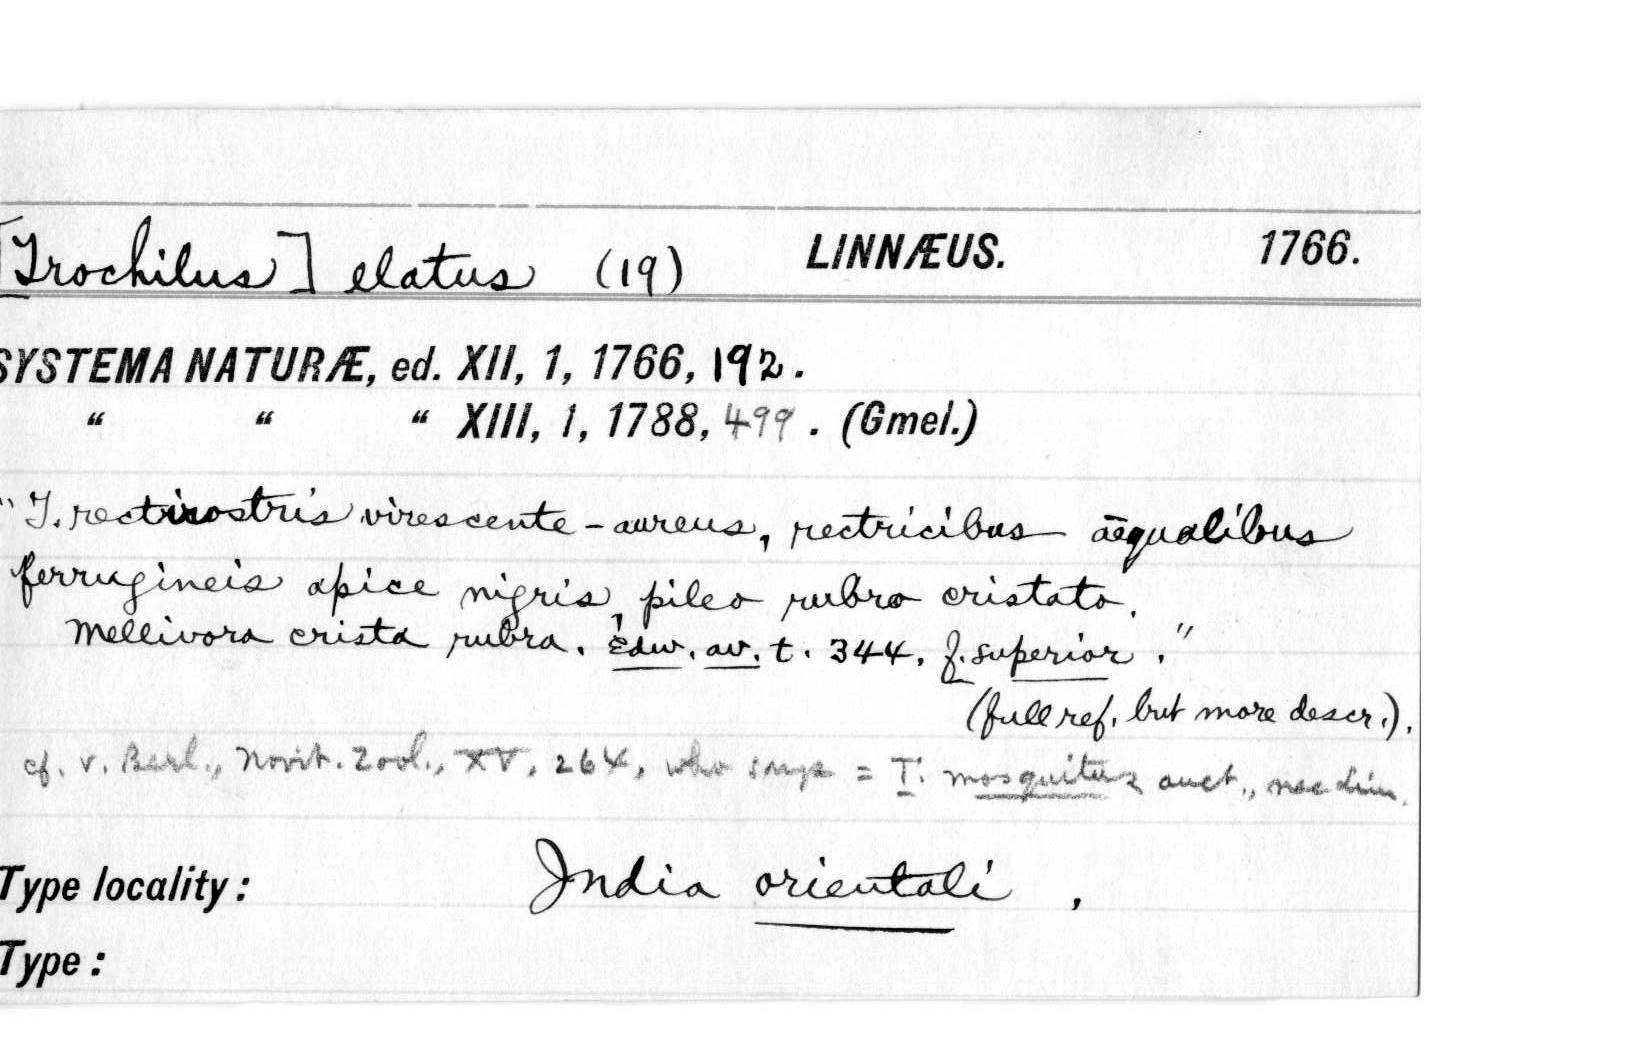 [Trochilus] elatus (19) LINNÆUS. 1766.
SYSTEMA NATURÆ, ed. XII, 1, 1766, 192.
“ “ “ XIII, 1, 1788, 499. (Gmel.)
"T. rectirostris virescente-aureus, rectricibus aequalibus
ferrugineis apice nigris, pileo rubro cristato.
Mellivora crista rubra. Edw. av. t. 344. f. superior."
(full ref. but more descr.).
cf. v. Berl., Novit. Zool., XV, 264, who says = T. mosquitus auct., nec Linn.
Type locality: India orientali,
Type: